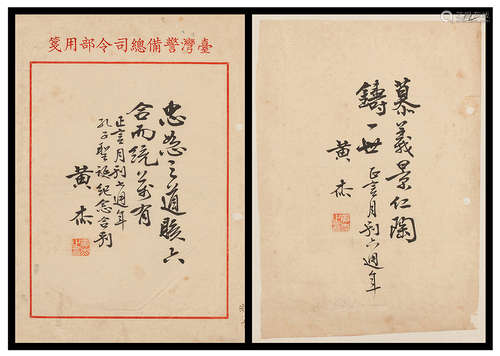 臺灣警備總司令部用箋
忠恕之道賅六
合而統萬有
正言月刊七週年
孔子聖誕紀念合刊
黃杰
慕義景仁陶
鑄一世
正言月刊六週年
黃杰